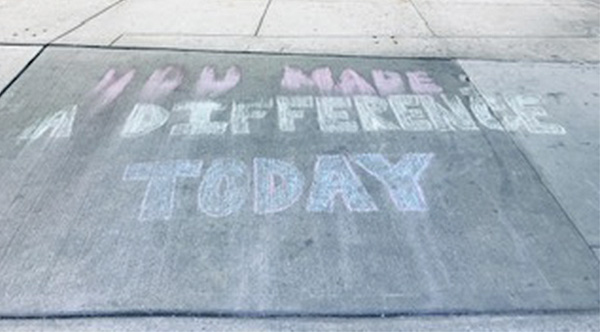 YOU MADE
A DIFFERENCE
TODAY